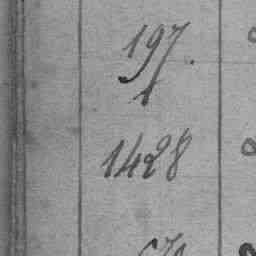 197.
1428